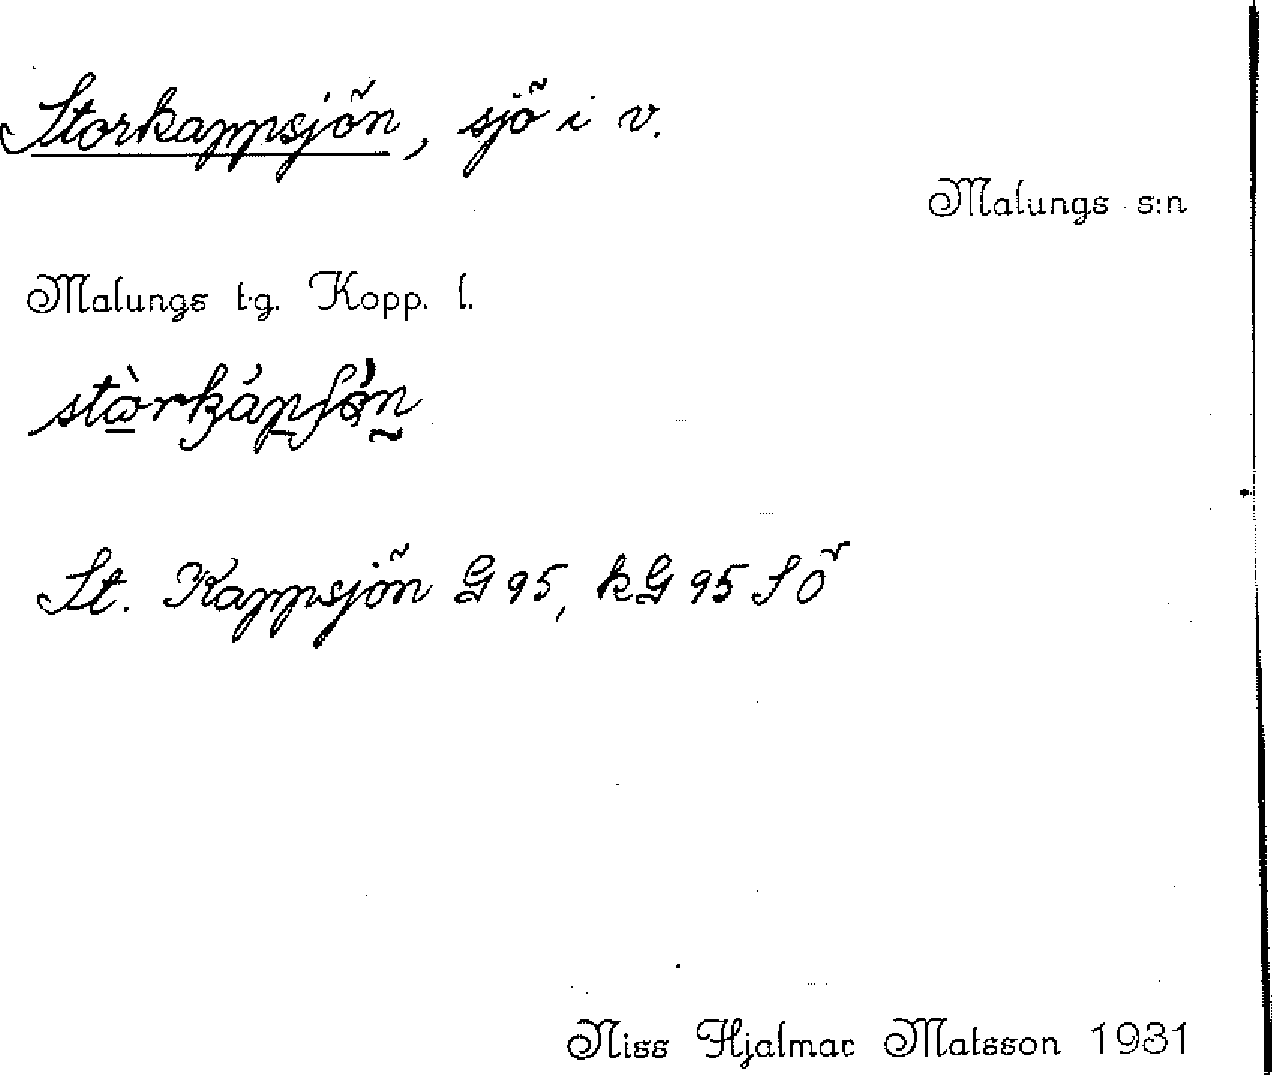 Storkappsjön, sjö i v.
Malungs s:n
Malungs t.g. Kopp. l.
St. Kappsjön G 95, kG 95 SÖ
Niss Hjalmar Matsson 1931